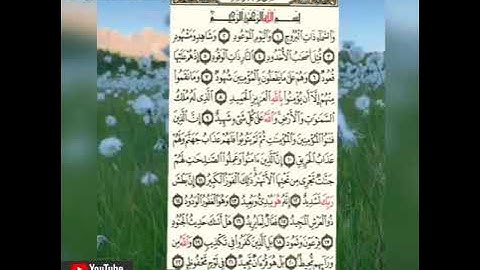 بِسْمِ اللَّهِ الرَّحْمَٰنِ الرَّحِيمِ
وَالسَّمَاءِ ذَاتِ الْبُرُوجِ ١ وَالْيَوْمِ الْمَوْعُودِ ٢ وَشَاهِدٍ وَمَشْهُودٍ
٣ قُتِلَ أَصْحَٰبُ الْأُخْدُودِ ٤ النَّارِ ذَاتِ الْوَقُودِ ٥ إِذْ هُمْ عَلَيْهَا
قُعُودٌ ٦ وَهُمْ عَلَىٰ مَا يَفْعَلُونَ بِالْمُؤْمِنِينَ شُهُودٌ ٧ وَمَا نَقَمُوا
مِنْهُمْ إِلَّا أَنْ يُؤْمِنُوا بِاللَّهِ الْعَزِيزِ الْحَمِيدِ ٨ الَّذِي لَهُ مُلْكُ
السَّمَٰوَٰتِ وَالْأَرْضِ وَاللَّهُ عَلَىٰ كُلِّ شَيْءٍ شَهِيدٌ ٩ إِنَّ الَّذِينَ
فَتَنُوا الْمُؤْمِنِينَ وَالْمُؤْمِنَٰتِ ثُمَّ لَمْ يَتُوبُوا فَلَهُمْ عَذَابُ جَهَنَّمَ وَلَهُمْ
عَذَابُ الْحَرِيقِ ١٠ إِنَّ الَّذِينَ ءَامَنُوا وَعَمِلُوا الصَّٰلِحَٰتِ لَهُمْ
جَنَّٰتٌ تَجْرِي مِنْ تَحْتِهَا الْأَنْهَٰرُ ذَٰلِكَ الْفَوْزُ الْكَبِيرُ ١١ إِنَّ بَطْشَ
رَبِّكَ لَشَدِيدٌ ١٢ إِنَّهُ هُوَ يُبْدِئُ وَيُعِيدُ ١٣ وَهُوَ الْغَفُورُ الْوَدُودُ ١٤
ذُو الْعَرْشِ الْمَجِيدُ ١٥ فَعَّالٌ لِمَا يُرِيدُ ١٦ هَلْ أَتَىٰكَ حَدِيثُ الْجُنُودِ
١٧ فِرْعَوْنَ وَثَمُودَ ١٨ بَلِ الَّذِينَ كَفَرُوا فِي تَكْذِيبٍ ١٩ وَاللَّهُ مِنْ
وَرَائِهِمْ مُحِيطٌ ٢٠ بَلْ هُوَ قُرْءَانٌ مَجِيدٌ ٢١ فِي لَوْحٍ مَحْفُوظٍ ٢٢
YouTube